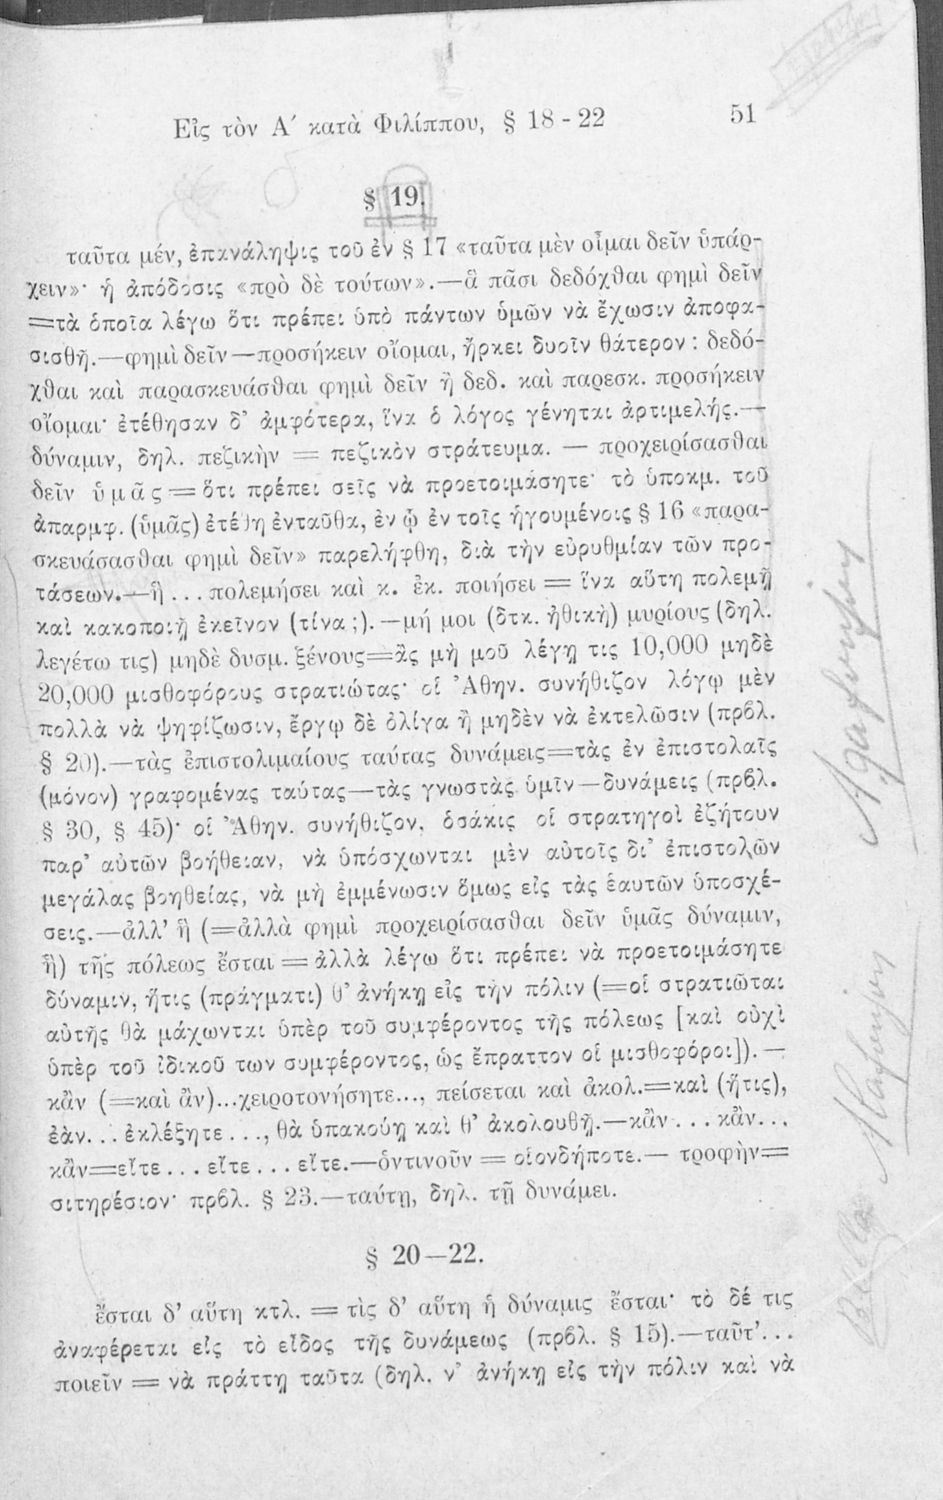 Εἰς τὸν Α΄ κατὰ Φιλίππου, § 18 - 22
51
§ 19.
ταῦτα μέν, ἐπανάληψις τοῦ ἐν § 17 «ταῦτα μὲν οἶμαι δεῖν ὑπάρ-
χειν»· ἡ ἀπόδοσις «πρὸ δὲ τούτων».—ἃ πᾶσι δεδόχθαι φημὶ δεῖν
=τὰ ὁποῖα λέγω ὅτι πρέπει ὑπὸ πάντων ὑμῶν νὰ ἔχωσιν ἀποφα-
σισθῆ.—φημὶ δεῖν—προσήκειν οἴομαι, ἤρκει δυοῖν θάτερον : δεδό-
χθαι καὶ παρασκευάσθαι φημὶ δεῖν ἢ δεδ. καὶ παρεσκ. προσήκειν
οἴομαι· ἐτέθησαν δ’ ἀμφότερα, ἵνα ὁ λόγος γένηται ἀρτιμελής.—
δύναμιν, δηλ. πεζικὴν = πεζικὸν στράτευμα. — προχειρίσασθαι
δεῖν ὑμᾶς = ὅτι πρέπει σεῖς νὰ προετοιμάσητε· τὸ ὑποκμ. τοῦ
ἀπαρμφ. (ὑμᾶς) ἐτέθη ἐνταῦθα, ἐν ᾧ ἐν τοῖς ἡγουμένοις § 16 «παρα-
σκευάσασθαι φημὶ δεῖν» παρελήφθη, διὰ τὴν εὐρυθμίαν τῶν προ-
τάσεων.—ἣ ... πολεμήσει καὶ κ. ἐκ. ποιήσει = ἵνα αὕτη πολεμῇ
καὶ κακοποιῇ ἐκεῖνον (τίνα ;). —μή μοι (δτκ. ἠθικὴ) μυρίους (δηλ.
λεγέτω τις) μηδὲ δυσμ. ξένους=ἂς μὴ μοῦ λέγῃ τις 10,000 μηδὲ
20,000 μισθοφόρους στρατιώτας· οἱ ’Αθην. συνήθιζον λόγῳ μὲν
πολλὰ νὰ ψηφίζωσιν, ἔργῳ δὲ ὀλίγα ἢ μηδὲν νὰ ἐκτελῶσιν (πρβλ.
§ 20).—τὰς ἐπιστολιμαίους ταύτας δυνάμεις=τὰς ἐν ἐπιστολαῖς
(μόνον) γραφομένας ταύτας—τὰς γνωστὰς ὑμῖν—δυνάμεις (πρβλ.
§ 30, § 45)· οἱ ’Αθην. συνήθιζον, ὁσάκις οἱ στρατηγοὶ ἐζήτουν
παρ’ αὐτῶν βοήθειαν, νὰ ὑπόσχωνται μὲν αὐτοῖς δι’ ἐπιστολῶν
μεγάλας βοηθείας, νὰ μὴ ἐμμένωσιν ὅμως εἰς τὰς ἑαυτῶν ὑποσχέ-
σεις.—ἀλλ’ ἣ (=ἀλλὰ φημὶ προχειρίσασθαι δεῖν ὑμᾶς δύναμιν,
ἣ) τῆς πόλεως ἔσται = ἀλλὰ λέγω ὅτι πρέπει νὰ προετοιμάσητε
δύναμιν, ἥτις (πράγματι) θ’ ἀνήκῃ εἰς τὴν πόλιν (=οἱ στρατιῶται
αὐτῆς θὰ μάχωνται ὑπὲρ τοῦ συμφέροντος τῆς πόλεως [καὶ οὐχὶ
ὑπὲρ τοῦ ἰδικοῦ των συμφέροντος, ὡς ἔπραττον οἱ μισθοφόροι]). —
κἂν (=καὶ ἂν)...χειροτονήσητε..., πείσεται καὶ ἀκολ.=καὶ (ἥτις),
ἐὰν... ἐκλέξητε ..., θὰ ὑπακούῃ καὶ θ’ ἀκολουθῇ.—κἂν ... κἂν...
κἂν=εἴτε ... εἴτε ... εἴτε.—ὁντινοῦν = οἱονδήποτε.— τροφὴν=
σιτηρέσιον· πρβλ. § 23.—ταύτῃ, δηλ. τῇ δυνάμει.
§ 20—22.
ἔσται δ’ αὕτη κτλ. = τὶς δ’ αὕτη ἡ δύναμις ἔσται· τὸ δέ τις
ἀναφέρεται εἰς τὸ εἶδος τῆς δυνάμεως (πρβλ. § 15).—ταῦτ’...
ποιεῖν = νὰ πράττῃ ταῦτα (δηλ. ν’ ἀνήκῃ εἰς τὴν πόλιν καὶ νὰ